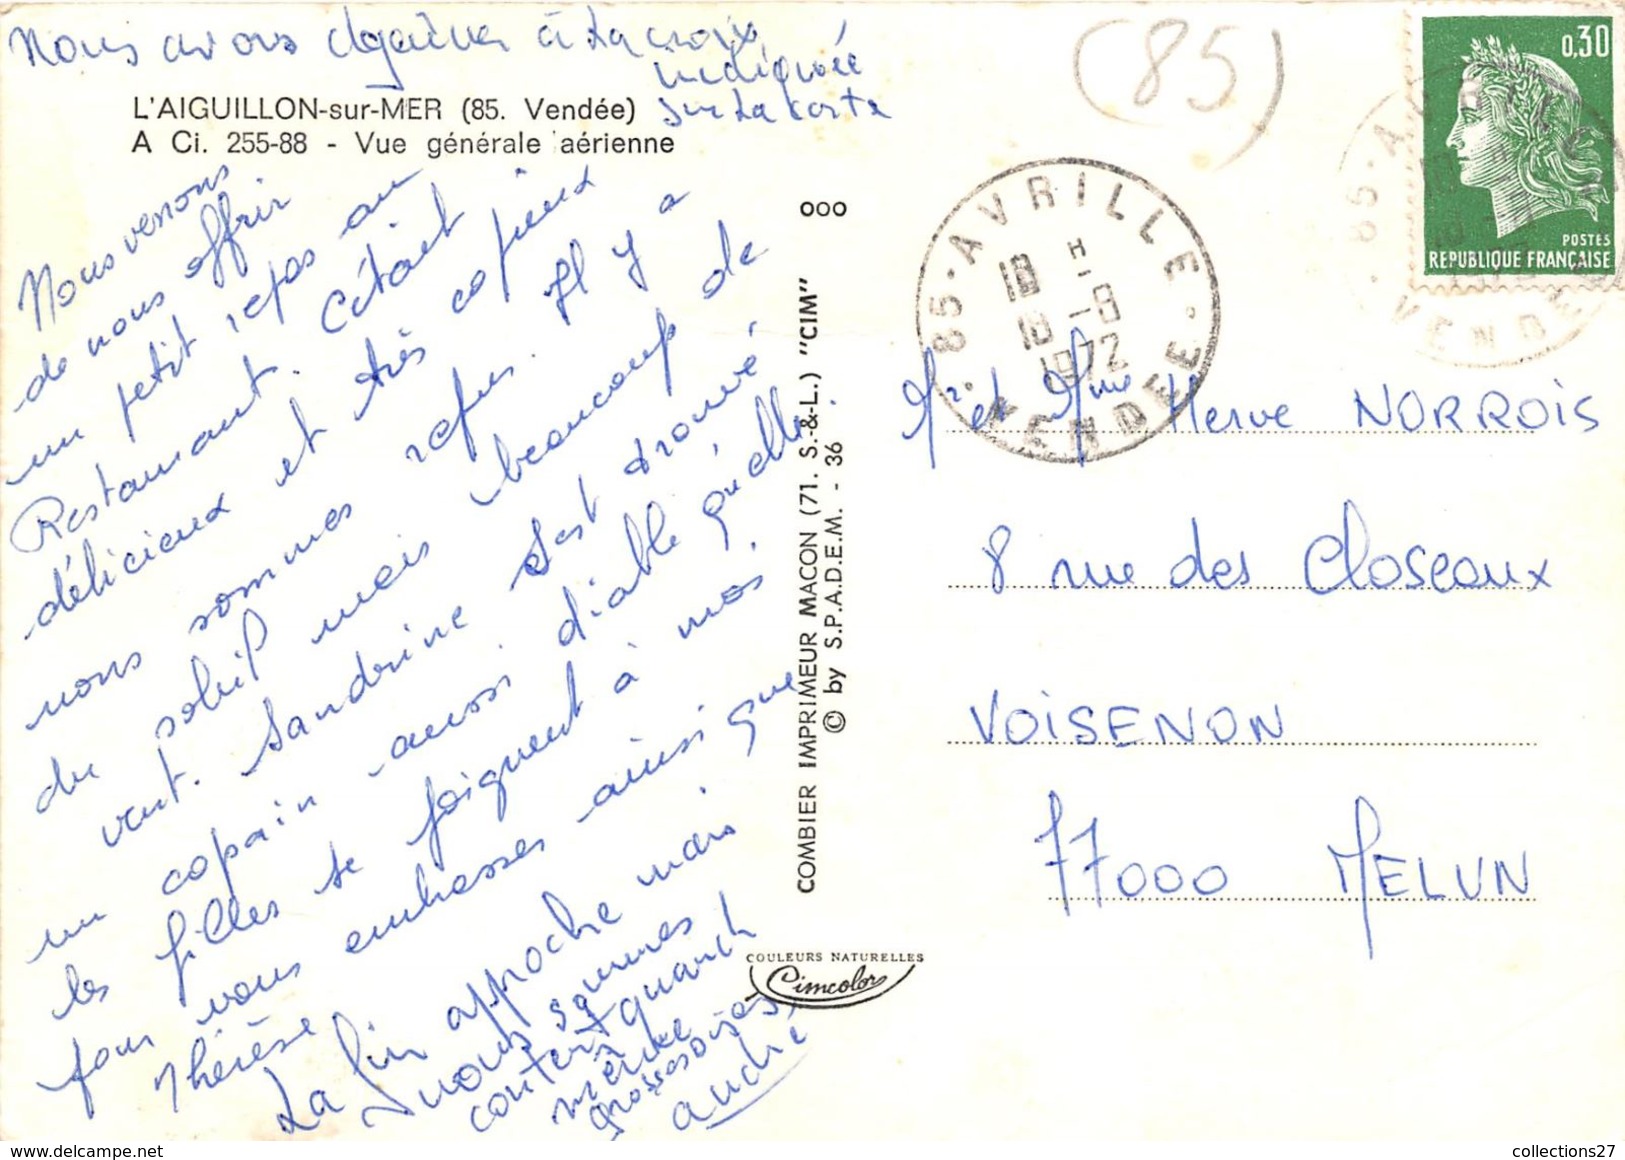 Nous avons déjeuner à la croix
indiquée
sur la carte
L'AIGUILLON-sur-MER (85. Vendée)
A Ci. 255-88 - Vue générale aérienne
Nous venons
de nous offrir
un petit repas au
Restaurant. C'était
délicieux et très copieux
nous sommes refus. Il y a
du soleil mais beaucoup de
vent. Sandrine s'est trouvé
un copain aussi diable qu'elle.
les filles se joignent à nos
pour vous embrasser ainsi que
Thérèse
La fin approche mais
nous sommes
content quand
même
grosses bises
andré
COMBIER IMPRIMEUR MACON (71. S.-&-L.) "CIM"
© by S.P.A.D.E.M. - 36
ooo
COULEURS NATURELLES
Cimcolor
(85)
85 - AVRILLE
18 H
10 -8
1972
VENDEE
0,30
POSTES
REPUBLIQUE FRANÇAISE
85 - AVRILLE
VENDEE
Mr et Mme Herve NORROIS
8 rue des Closeaux
VOISENON
77000 MELUN
collections27